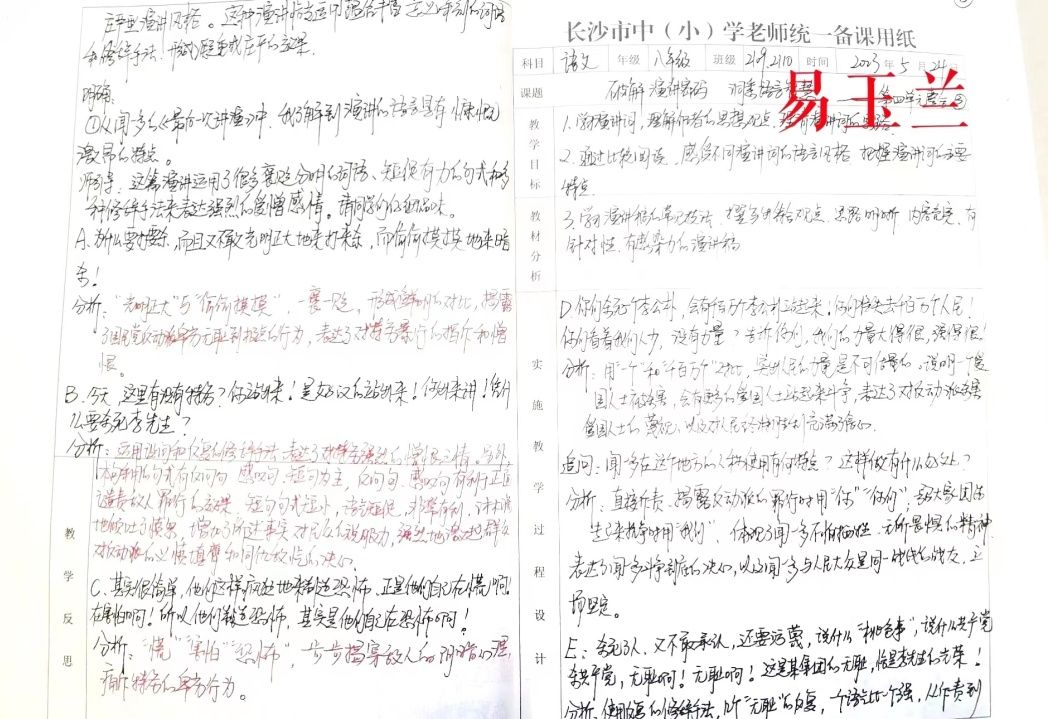 庄严型演讲风格。这种演讲恰当运用蕴含丰富、意义深刻的词语
和修辞手法,形成庄重或庄严的效果。
明确:
①从闻一多的《最后一次讲演》中,我们了解到演讲的语言具有慷慨
激昂的特点。
师引导:这篇演讲运用了很多褒贬分明的词语、短促有力的句式和多
种修辞手法来表达强烈的爱憎感情。请同学们仔细品味。
A.为什么要打要杀,而且又不敢光明正大地来打来杀,而偷偷摸摸地来暗
杀!
分析:“光明正大”与“偷偷摸摸”,一褒一贬,形成鲜明的对比,揭露
了国民党反动派卑劣无耻到极点的行为,表达了对特务暴行的指斥和憎
恨。
B.今天,这里有没有特务?你站出来!是好汉的站出来!你出来讲!凭什
么要杀死李先生?
分析:运用设问和反复的修辞手法,表达了对特务强烈的憎恨之情。另外
本句中用的句式有反问句、感叹句,短句为主,反问句、感叹句有利于正面
谴责敌人罪行的效果,短句句式短小,语气短促,
C.其实很简单,他们这样疯狂地来制造恐怖,正是他们自己在慌啊!
在害怕啊!所以他们制造恐怖,其实是他们自己在恐怖啊!
分析:“慌”“害怕”“恐怖”,步步揭穿敌人的阴暗心理,
痛斥特务的卑劣行为。
教学反思
长沙市中(小)学老师统一备课用纸
科目 语文 年级 八年级 班级 2109.2110 时间 2023年5月24日
课题 破解演讲密码 洞悉语言智慧 第四单元整合③
易玉兰
教学目标
1.学习演讲词,理解作者的思想观点,
2.通过比较阅读,感受不同演讲词的语言风格,把握演讲词的主要
特点
教材分析
3.学习演讲稿的常见技法,撰写观点、思路明晰、内容充实、有
针对性、有感染力的演讲稿
实施教学过程设计
D 你们杀死一个李公朴,会有千百万个李公朴站起来!你们将失去千百万个人民!
你们看着我们人少,没有力量?告诉你们,我们的力量大得很,强得很!
分析:用“一个”和“千百万个”对比,突出人民的力量是不可估量的。说明一个爱
国人士被害,会有更多的爱国人士站起来斗争,表达了对反动派杀害
爱国人士的蔑视,以及对人民终将胜利充满了信心。
追问:闻一多在这个地方的人称使用有何特点?这样做有什么好处?
分析:直接斥责、揭露反动派的罪行时用“你”“你们”;号召大家团结
起来战斗时用“我们”。体现了闻一多不怕牺牲、无所畏惧的精神,
表达了闻一多斗争到底的决心,以及闻一多与人民大众是同一战线的战友,立
场坚定。
E:杀死了人,又不敢承认,还要污蔑,说什么“桃色事件”,说什么共产党
杀共产党,无耻啊!无耻啊!这是某集团的无耻,恰是李先生的光荣!
分析:使用反复的修辞手法,几个“无耻”的反复,一个语气比一个强,从斥责到